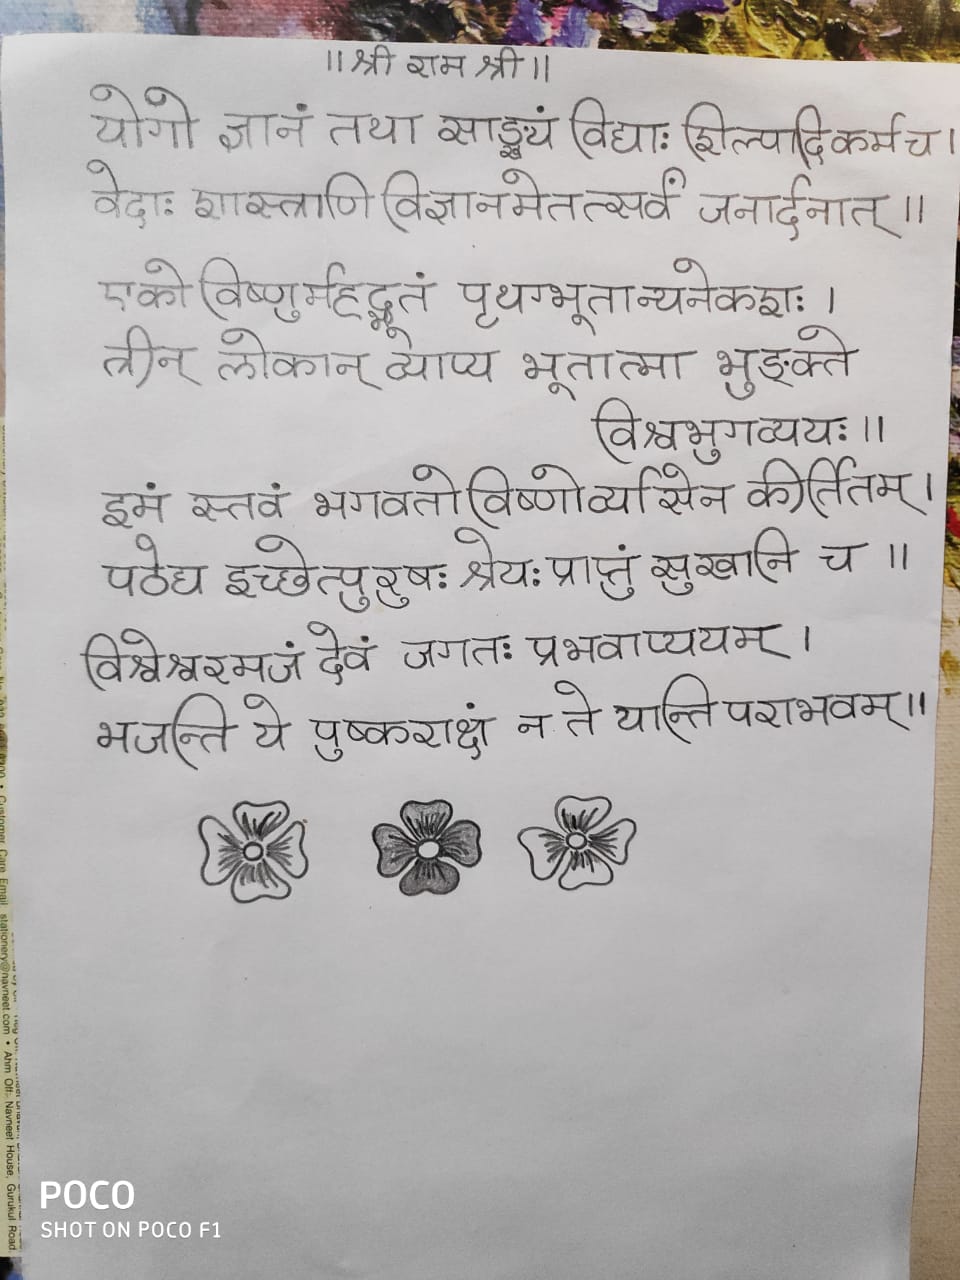 ॥ श्री राम श्री ॥
योगो ज्ञानं तथा साङ्ख्यं विद्याः शिल्पादिकर्म च ।
वेदाः शास्त्राणि विज्ञानमेतत्सर्वं जनार्दनात् ॥
एको विष्णुर्महद्भूतं पृथग्भूतान्यनेकशः ।
त्रीन् लोकान् व्याप्य भूतात्मा भुङ्क्ते
विश्वभुगव्ययः ॥
इमं स्तवं भगवतो विष्णोर्व्यासेन कीर्तितम् ।
पठेद्य इच्छेत्पुरुषः श्रेयः प्राप्तुं सुखानि च ॥
विश्वेश्वरमजं देवं जगतः प्रभवाप्ययम् ।
भजन्ति ये पुष्कराक्षं न ते यान्ति पराभवम् ॥
POCO
SHOT ON POCO F1
Customer Care Email stationery@navneet.com • Ahm Off: Navneet House, Gurukul Road